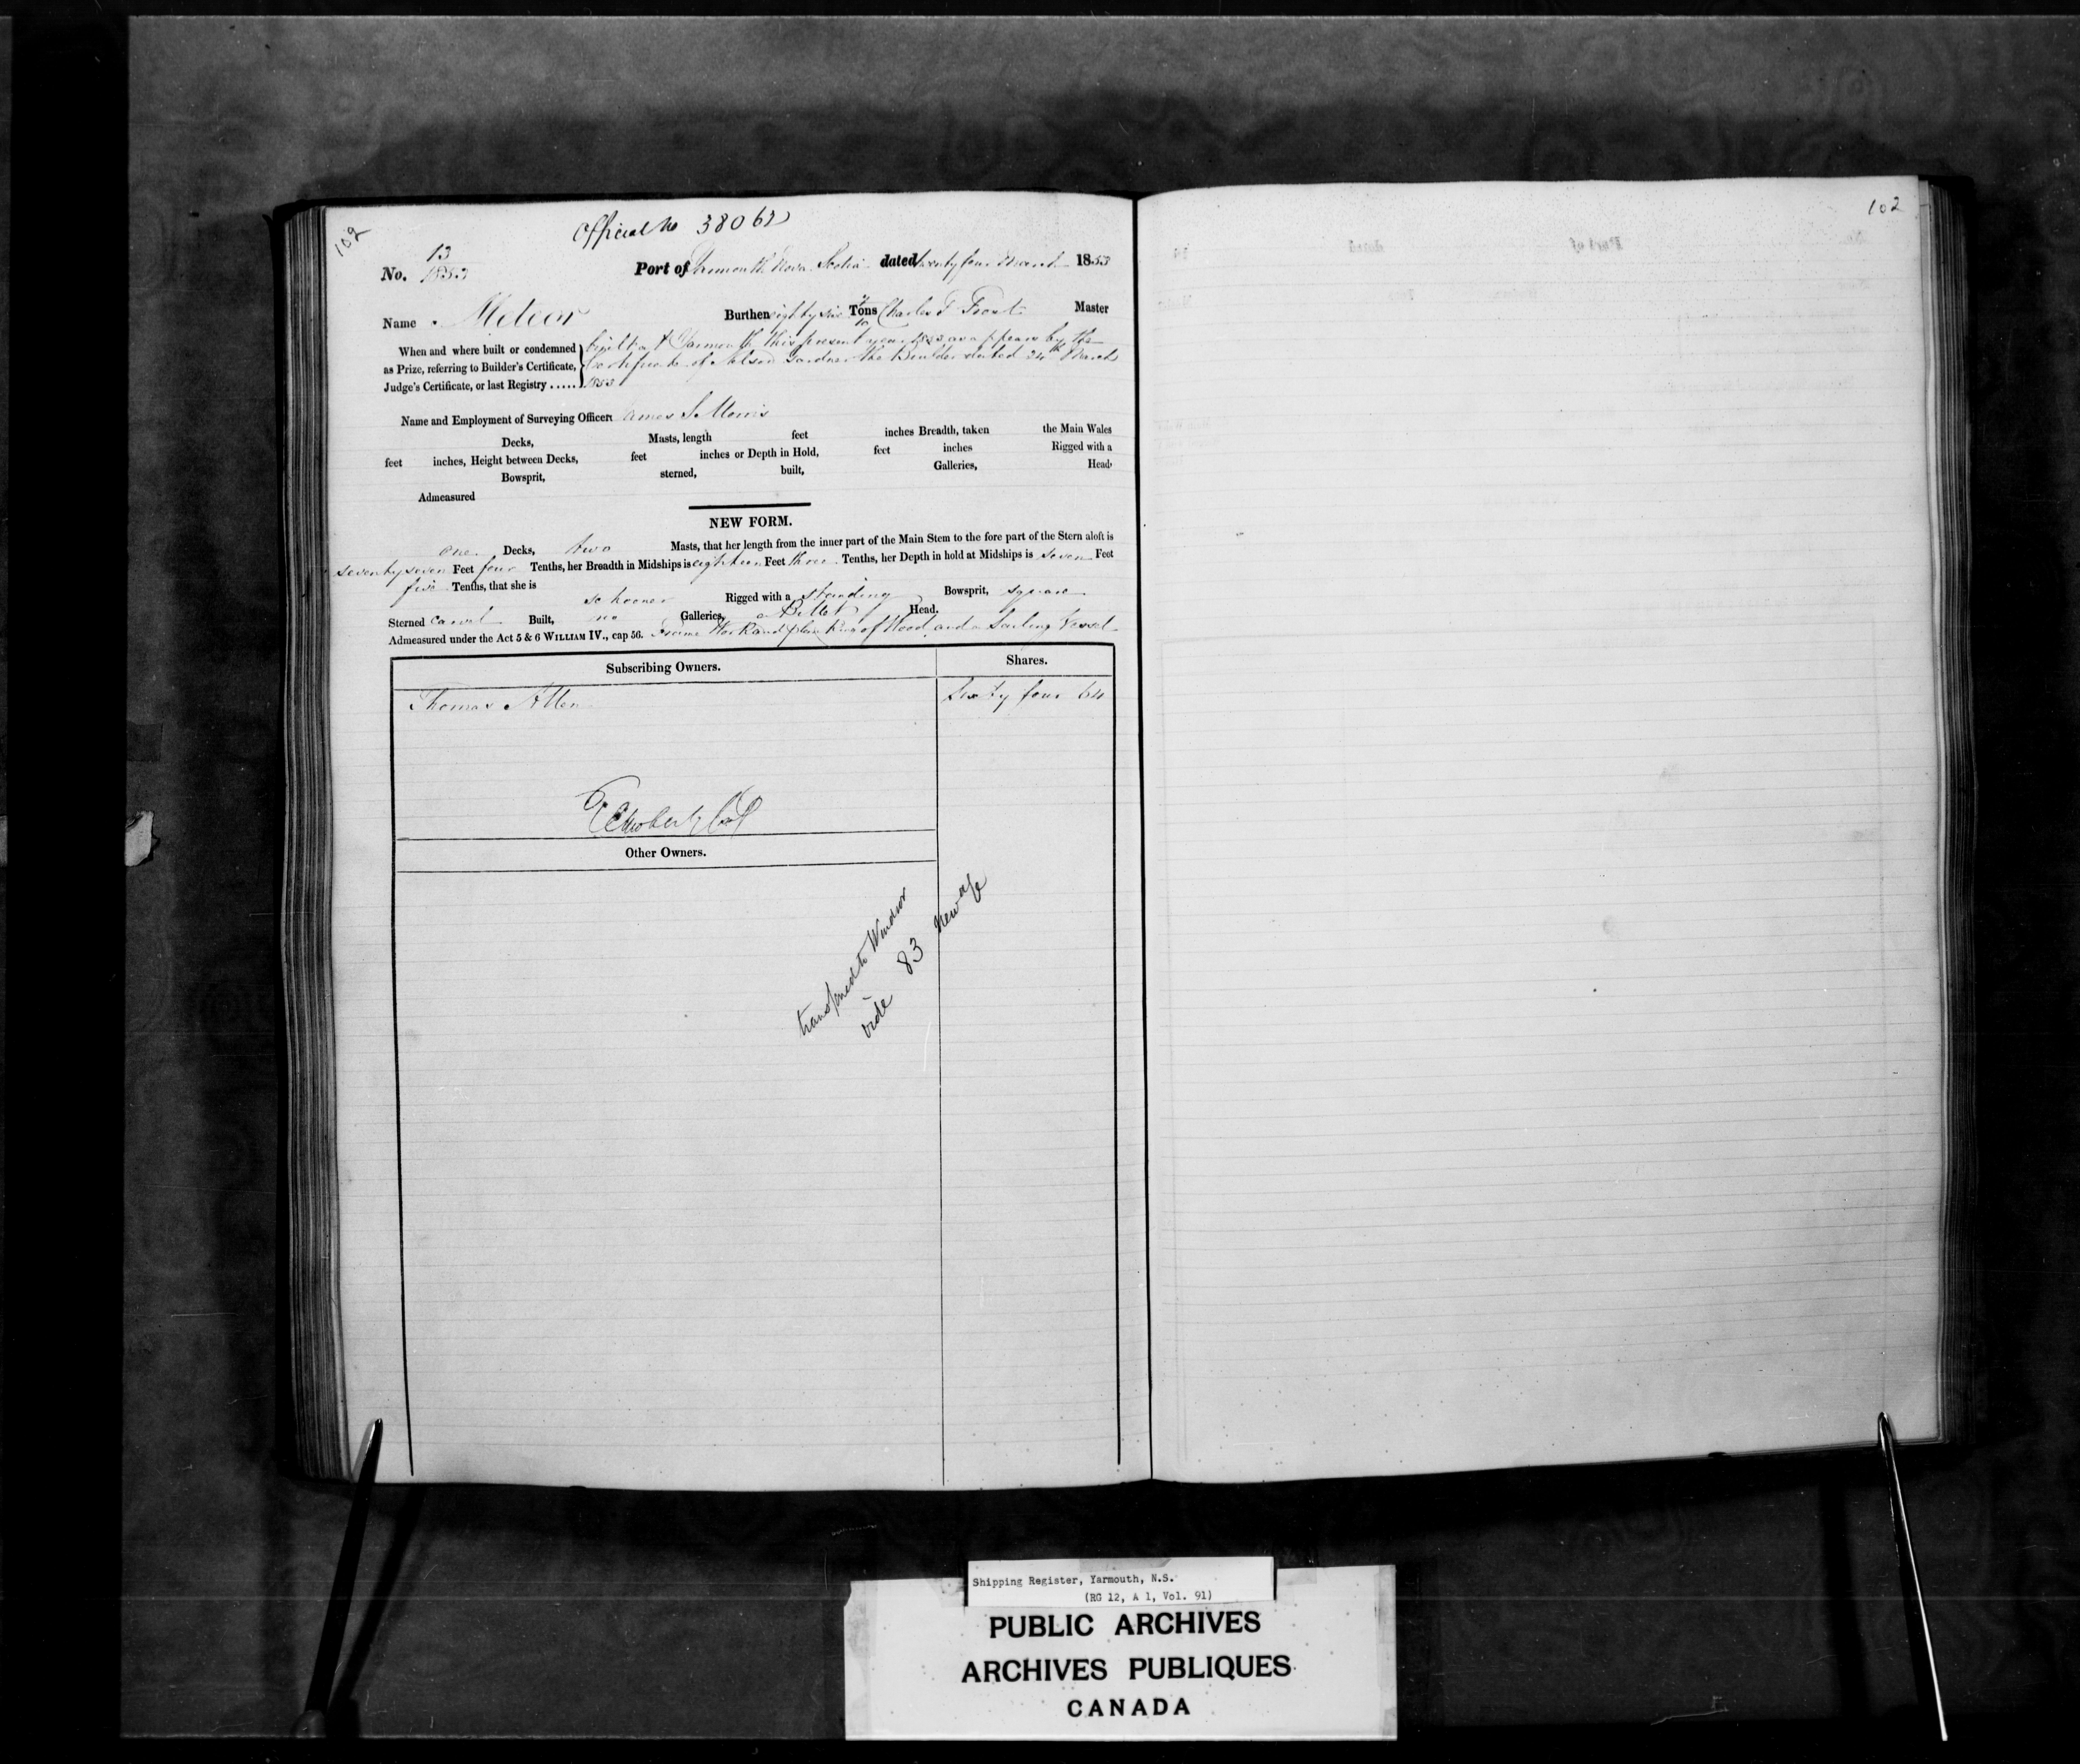 102
Official No 38062
No. 13
1853
Port of Yarmouth Nova Scotia dated twenty four March 1853
Name Meteor Burthen eighty six Tons Charles T Frost Master
When and where built or condemned
as Prize, referring to Builder's Certificate,
Judge's Certificate, or last Registry .....
built at Yarmouth this present year 1853 as appears by the
Certificate of Nelson Gardner the Builder dated 24th March
1853
Name and Employment of Surveying Officer James S Morris
Decks, Masts, length feet inches Breadth, taken the Main Wales
feet inches, Height between Decks, feet inches or Depth in Hold, feet inches Rigged with a
Bowsprit, sterned, built, Galleries, Head,
Admeasured
NEW FORM.
one Decks, two Masts, that her length from the inner part of the Main Stem to the fore part of the Stern aloft is
seventy seven Feet four Tenths, her Breadth in Midships is eighteen Feet three Tenths, her Depth in hold at Midships is seven Feet
five Tenths, that she is schooner Rigged with a standing Bowsprit, square
Sterned carvel Built, no Galleries, a Billet Head.
Admeasured under the Act 5 & 6 WILLIAM IV., cap 56. Frame Work and planking of Wood and a Sailing Vessel
Subscribing Owners. Shares.
Thomas Allen Sixty four 64
Other Owners.
transferred to Windsor
vide 83 new
102
Shipping Register, Yarmouth, N.S.
(RG 12, A 1, Vol. 91)
PUBLIC ARCHIVES
ARCHIVES PUBLIQUES
CANADA